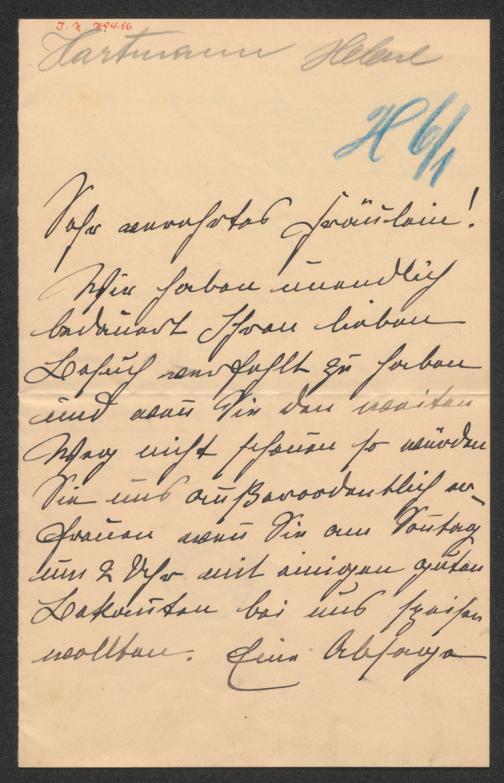 I. N. 79416
Hartmann Helene
H 6/1
Sehr verehrtes Fräulein!
Wir haben unendlich
bedauert Ihren lieben
Besuch verfehlt zu haben
und wen̄ Sie den weiten
Weg nicht scheuen so würden
Sie uns außerordentlich er-
freuen wen̄ Sie am Sontag
um 2 Uhr mit einigen guten
Bekan̄ten bei uns speisen
wollten. Eine Absage